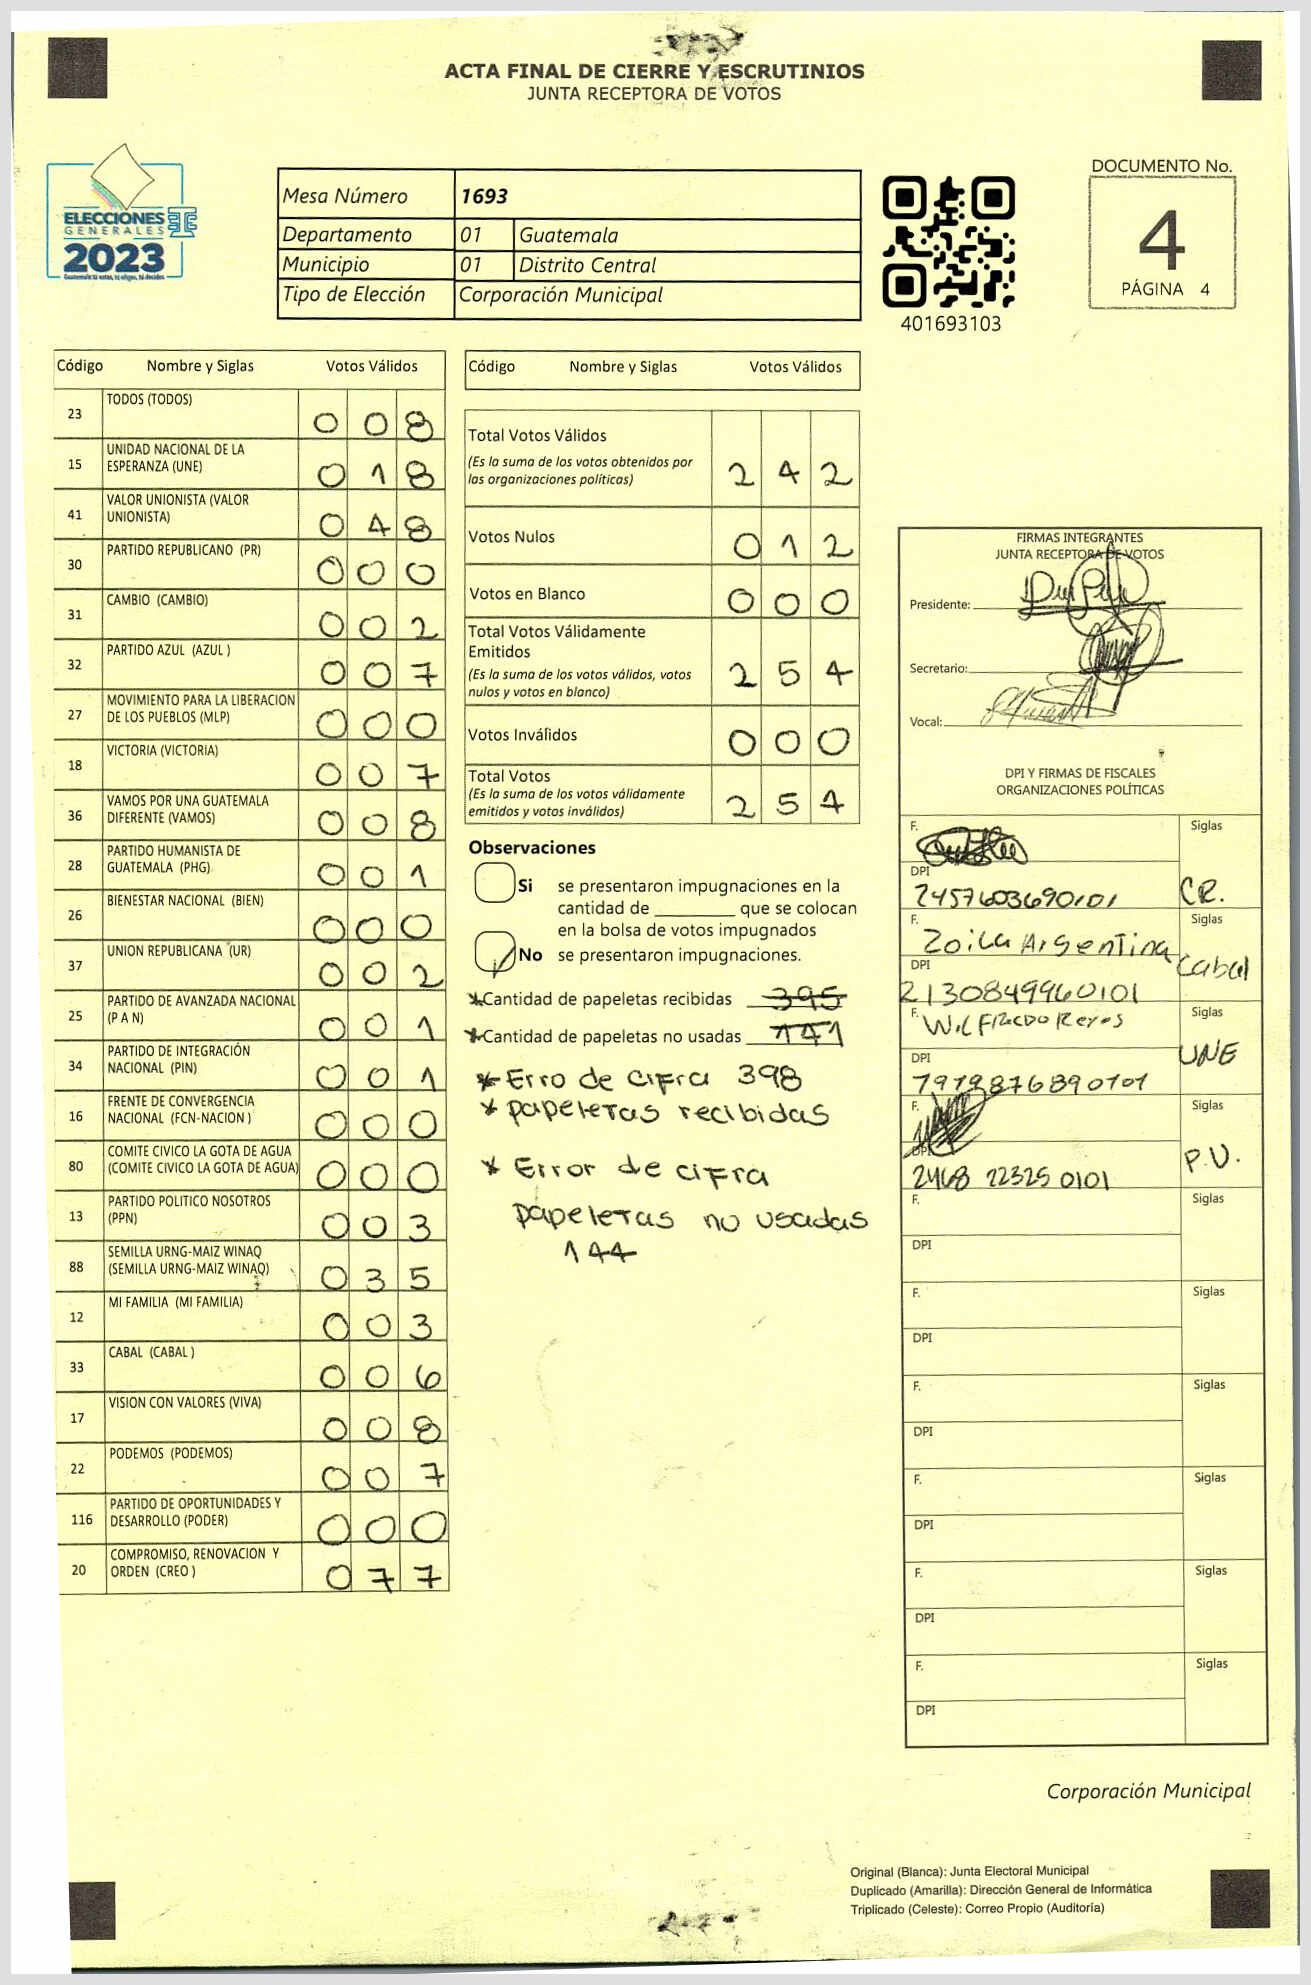 ACTA FINAL DE CIERRE Y ESCRUTINIOS
JUNTA RECEPTORA DE VOTOS
ELECCIONES
GENERALES
2023
Guatemala tú votas, tú eliges, tú decides
Mesa Número 1693
Departamento 01 Guatemala
Municipio 01 Distrito Central
Tipo de Elección Corporación Municipal
401693103
DOCUMENTO No.
4
PÁGINA 4
Código Nombre y Siglas Votos Válidos
23 TODOS (TODOS) 0 0 8
15 UNIDAD NACIONAL DE LA ESPERANZA (UNE) 0 1 8
41 VALOR UNIONISTA (VALOR UNIONISTA) 0 4 8
30 PARTIDO REPUBLICANO (PR) 0 0 0
31 CAMBIO (CAMBIO) 0 0 2
32 PARTIDO AZUL (AZUL ) 0 0 7
27 MOVIMIENTO PARA LA LIBERACION DE LOS PUEBLOS (MLP) 0 0 0
18 VICTORIA (VICTORIA) 0 0 7
36 VAMOS POR UNA GUATEMALA DIFERENTE (VAMOS) 0 0 8
28 PARTIDO HUMANISTA DE GUATEMALA (PHG) 0 0 1
26 BIENESTAR NACIONAL (BIEN) 0 0 0
37 UNION REPUBLICANA (UR) 0 0 2
25 PARTIDO DE AVANZADA NACIONAL (P A N) 0 0 1
34 PARTIDO DE INTEGRACIÓN NACIONAL (PIN) 0 0 1
16 FRENTE DE CONVERGENCIA NACIONAL (FCN-NACION ) 0 0 0
80 COMITE CIVICO LA GOTA DE AGUA (COMITE CIVICO LA GOTA DE AGUA) 0 0 0
13 PARTIDO POLITICO NOSOTROS (PPN) 0 0 3
88 SEMILLA URNG-MAIZ WINAQ (SEMILLA URNG-MAIZ WINAQ) 0 3 5
12 MI FAMILIA (MI FAMILIA) 0 0 3
33 CABAL (CABAL ) 0 0 6
17 VISION CON VALORES (VIVA) 0 0 8
22 PODEMOS (PODEMOS) 0 0 7
116 PARTIDO DE OPORTUNIDADES Y DESARROLLO (PODER) 0 0 0
20 COMPROMISO, RENOVACION Y ORDEN (CREO ) 0 7 7
Código Nombre y Siglas Votos Válidos
Total Votos Válidos
(Es la suma de los votos obtenidos por
las organizaciones políticas) 2 4 2
Votos Nulos 0 1 2
Votos en Blanco 0 0 0
Total Votos Válidamente
Emitidos
(Es la suma de los votos válidos, votos
nulos y votos en blanco) 2 5 4
Votos Inválidos 0 0 0
Total Votos
(Es la suma de los votos válidamente
emitidos y votos inválidos) 2 5 4
Observaciones
Si se presentaron impugnaciones en la
cantidad de ________ que se colocan
en la bolsa de votos impugnados
No se presentaron impugnaciones.
*Cantidad de papeletas recibidas 395
*Cantidad de papeletas no usadas 141
* Erro de cifra 398
* papeletas recibidas
* Error de cifra
papeletas no usadas
144
FIRMAS INTEGRANTES
JUNTA RECEPTORA DE VOTOS
Presidente:
Secretario:
Vocal:
DPI Y FIRMAS DE FISCALES
ORGANIZACIONES POLÍTICAS
F. Siglas
DPI
2457603690101 CR.
F. Zoila Argentina Siglas
DPI Cabal
2130849960101
F. Wilfredo Reyes Siglas
DPI UNE
7979876890101
F. Siglas
DPI P.U.
2468 22325 0101
F. Siglas
DPI
F. Siglas
DPI
F. Siglas
DPI
F. Siglas
DPI
F. Siglas
DPI
F. Siglas
DPI
Corporación Municipal
Original (Blanca): Junta Electoral Municipal
Duplicado (Amarilla): Dirección General de Informática
Triplicado (Celeste): Correo Propio (Auditoría)